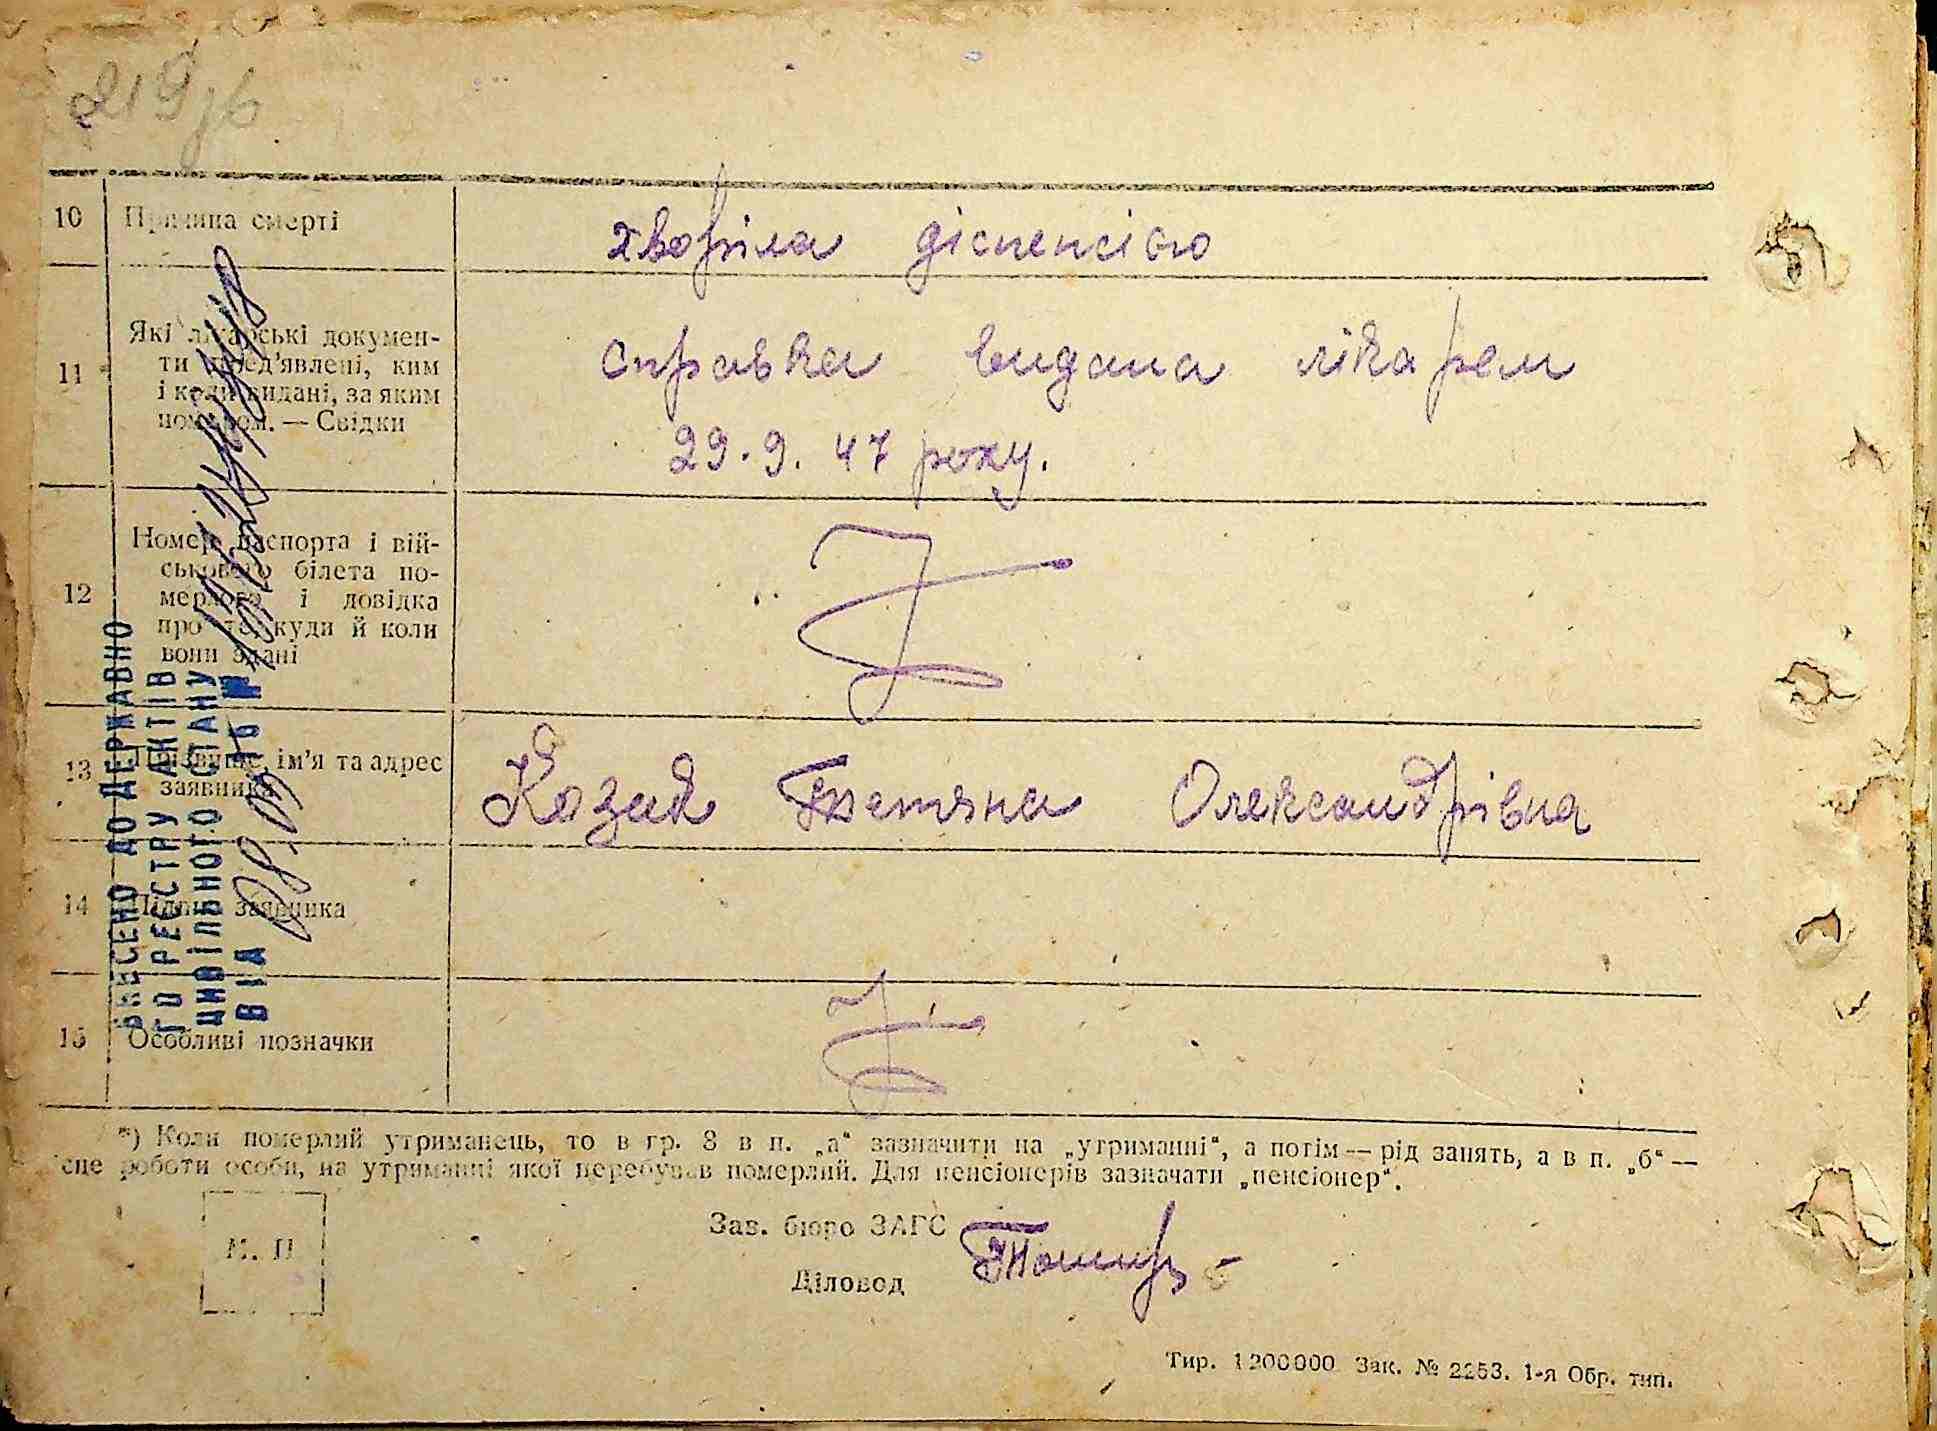 219зв
10 Причина смерті хворіла діспенсією
11 Які лікарські докумен-
ти пред'явлені, ким
і коли видані, за яким
номером. — Свідки
справка видана лікарем
29.9.47 року.
12 Номер паспорта і вій-
ськового білета по-
мерлого і довідка
про те, куди й коли
вони здані
13 Прізвище, ім'я та адрес
заявника
Козак Тетяна Олександрівна
14 Підпис заявника
15 Особливі позначки
ВНЕСЕНО ДО ДЕРЖАВНО
ГО РЕЄСТРУ АКТІВ
ЦИВІЛЬНОГО СТАНУ
ВІД
*) Коли померлий утриманець, то в гр. 8 в п. „а“ зазначити на „утриманні“, а потім — рід занять, а в п. „б“ —
сце роботи особи, на утриманні якої перебував померлий. Для пенсіонерів зазначати „пенсіонер“.
М. П
Зав. бюро ЗАГС
Діловод
Тир. 1200000 Зак. № 2253. 1-я Обр. тип.